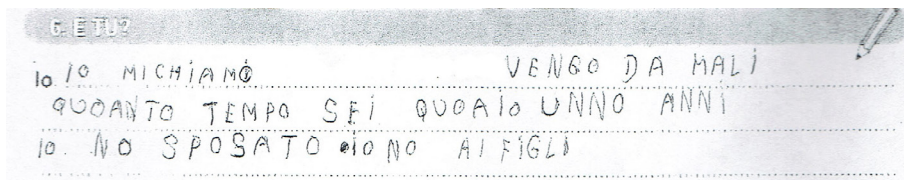 6. E TU?
Io IO MICHIAMO VENGO DA MALI
QUOANTO TEMPO SEI QUOAIO UNNO ANNI
IO. NO SPOSATO IO NO AI FIGLI